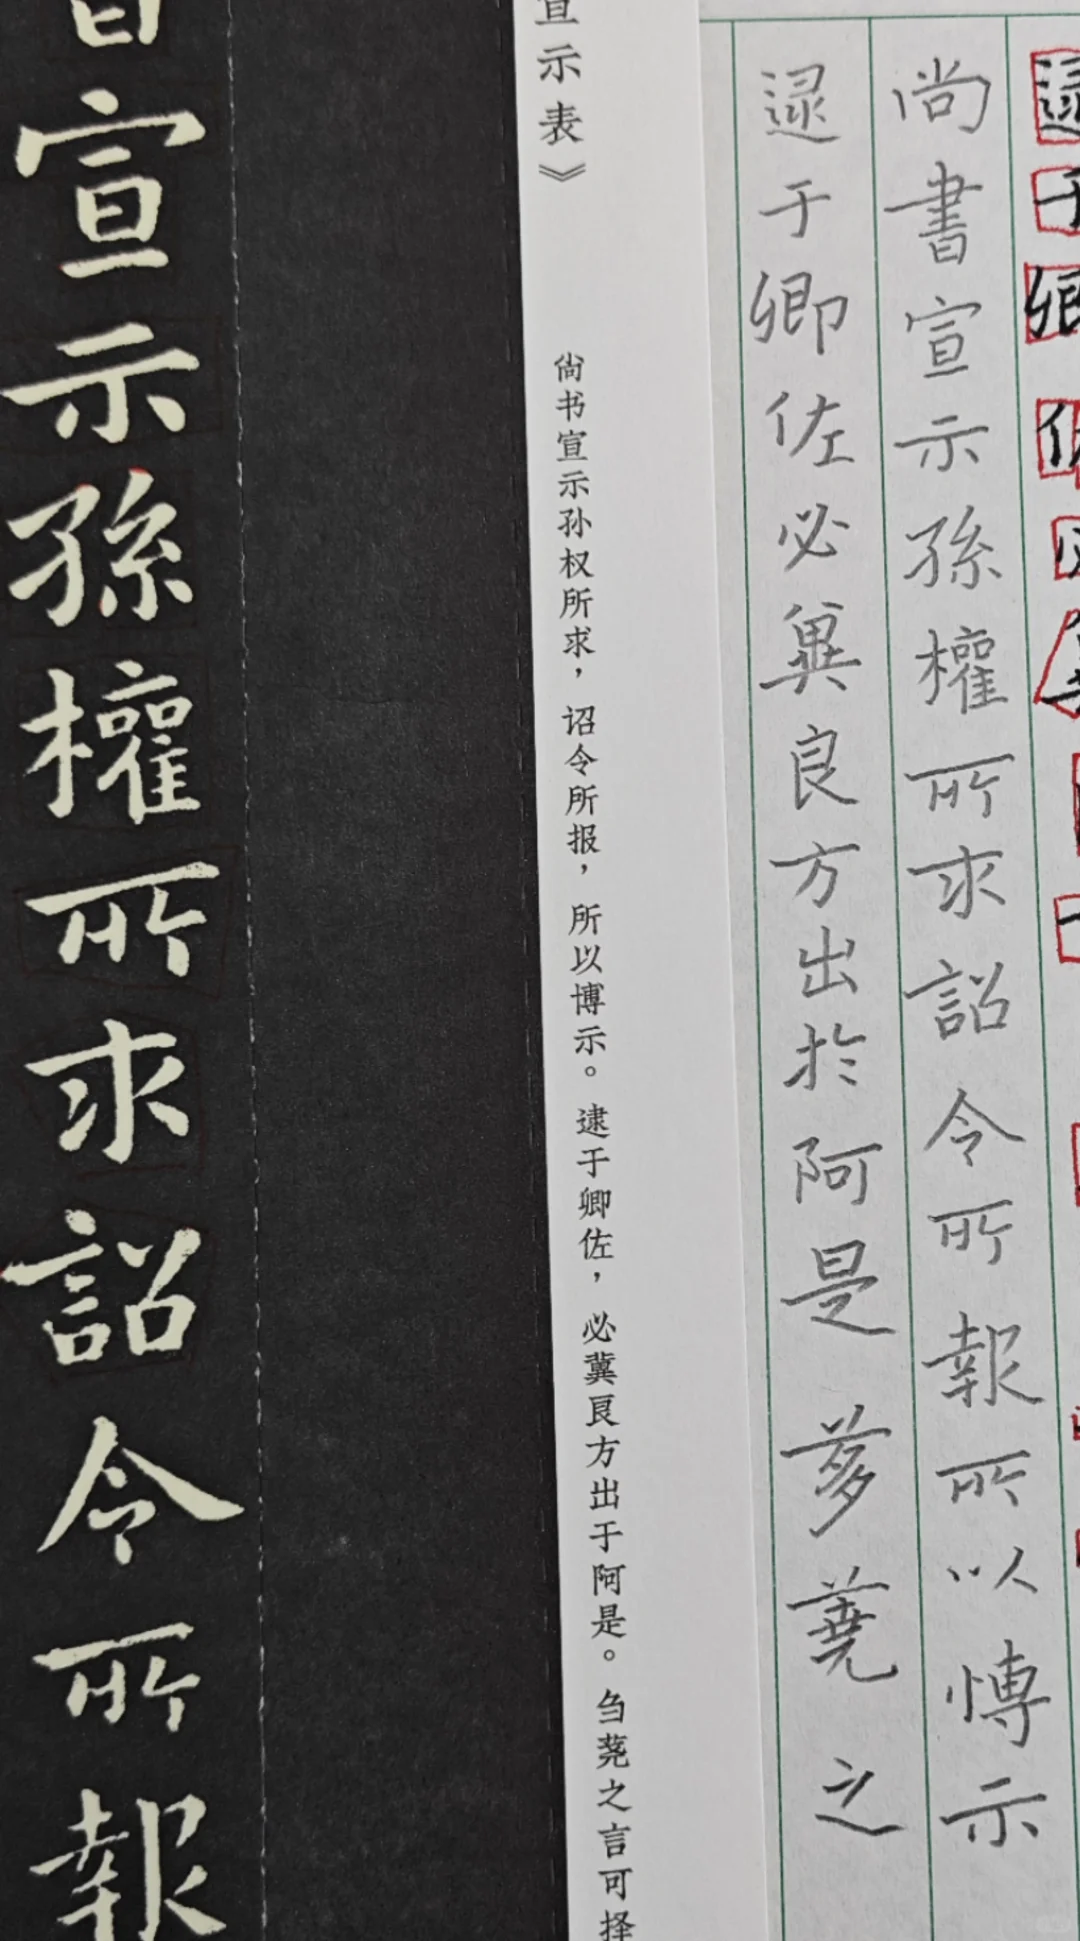 逯于卿佐必
尚書宣示孫權所求詔令所報所以博示
逯于卿佐必冀良方出於阿是蒭蕘之
宣示表》
尚书宣示孙权所求，诏令所报，所以博示。逮于卿佐，必冀良方出于阿是。刍荛之言可择
宣示孫權所求詔令所報